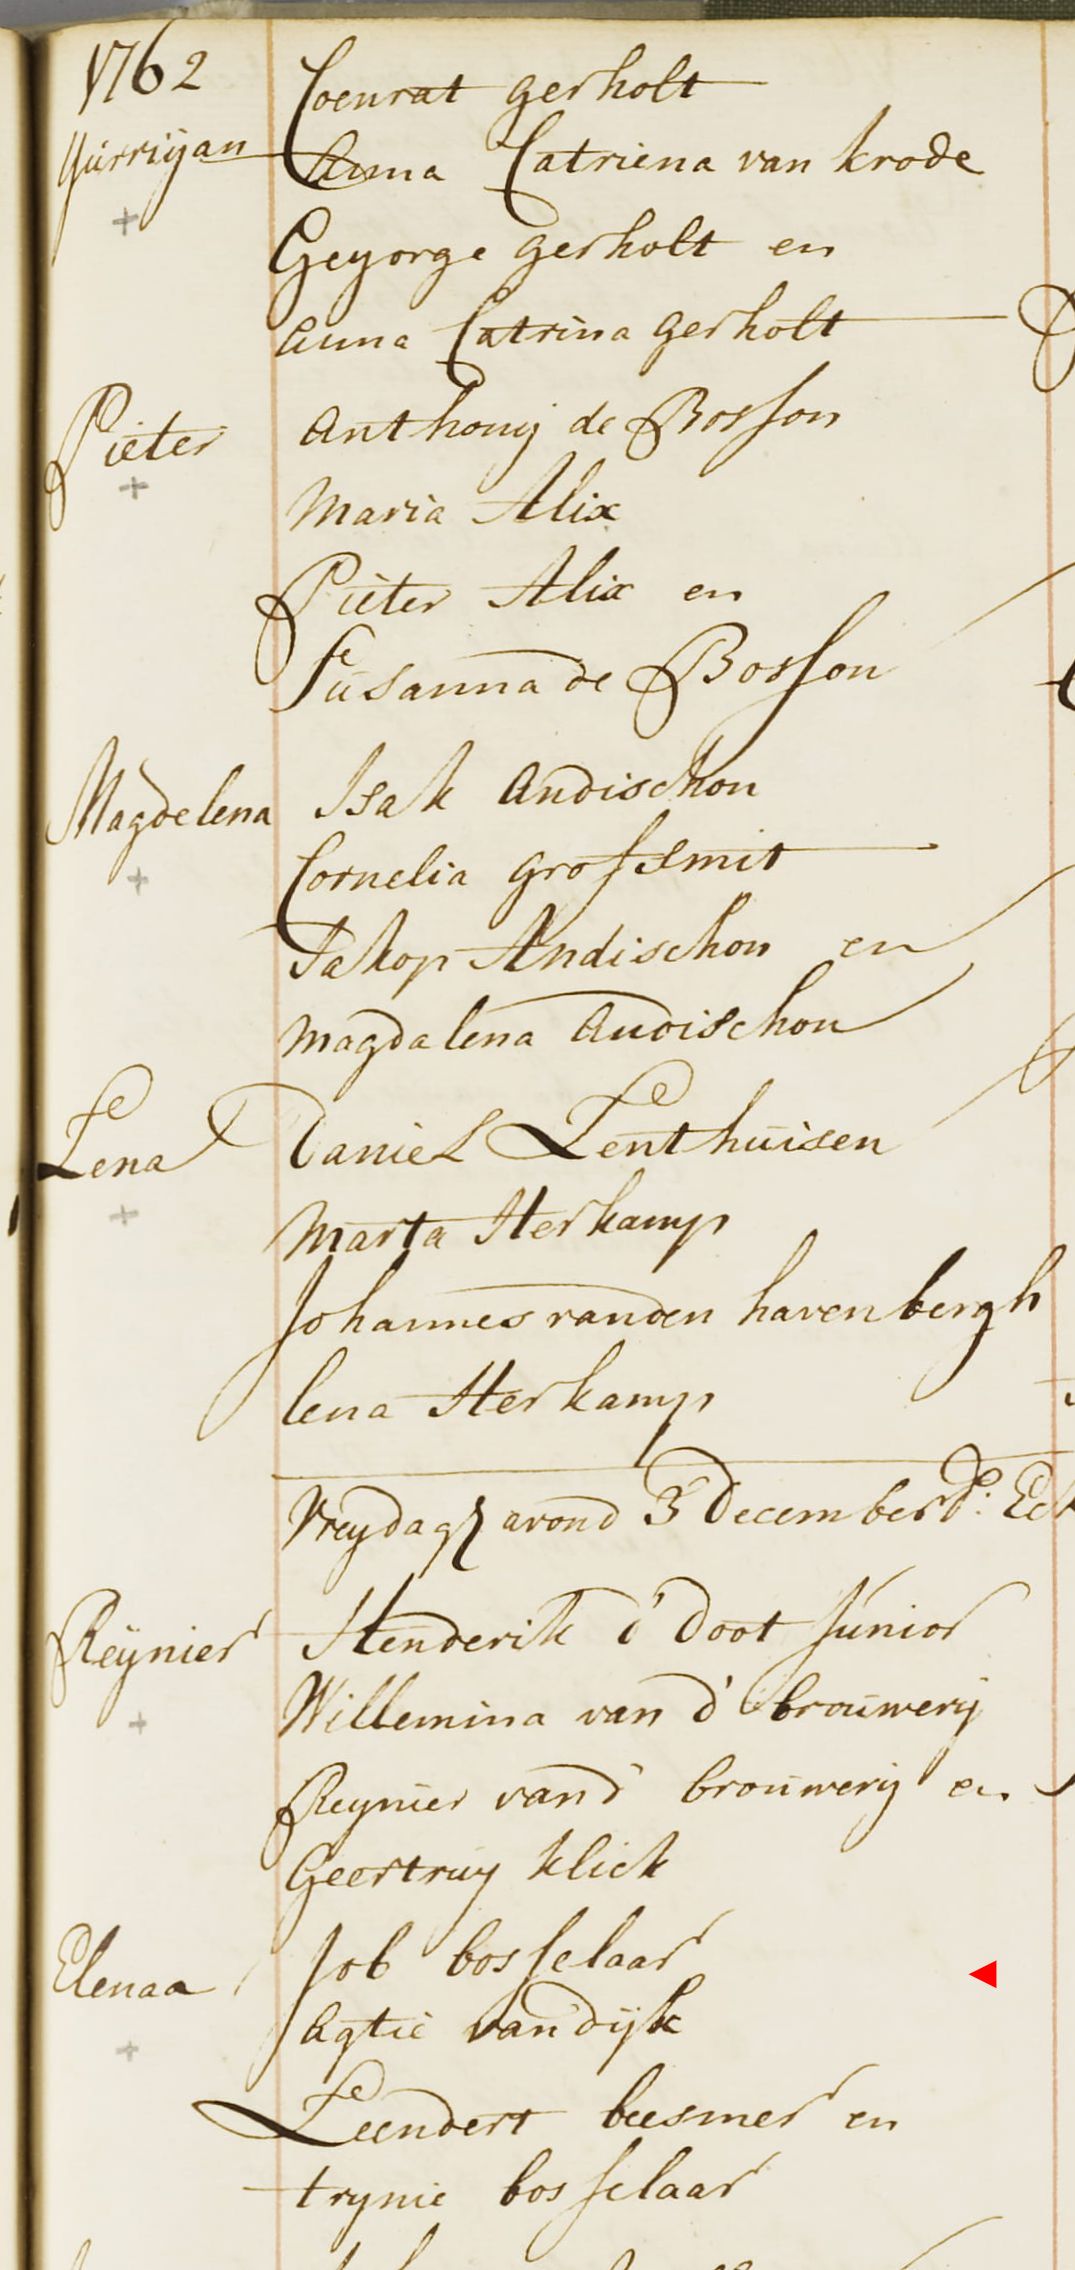 1762
Coenrat gerholt
Jurriyan Anna Catriena van krode
Geyorge gerholt en
Anna Catrina gerholt
Pieter Anthonij de Bosson
Maria Alix
Pieter Alix en
Susanna de Bosson
Magdelena Isak Andischon
Cornelia grofsmit
Jakop Andischon en
Magdalena Andischon
Lena Daniel Lenthuisen
Marta Herkamp
Johannes vanden havenbergh
lena Herkamp
Vreydags avond 3 December d:
Reÿnier Henderik d' Doot Junior
Willemina van d' brouwerij
Reynier vand' brouwerij en
Geertruy klick
Elenaa Job bosselaar
Agtie van dijk
Leendert beesmer en
trynie bosselaar